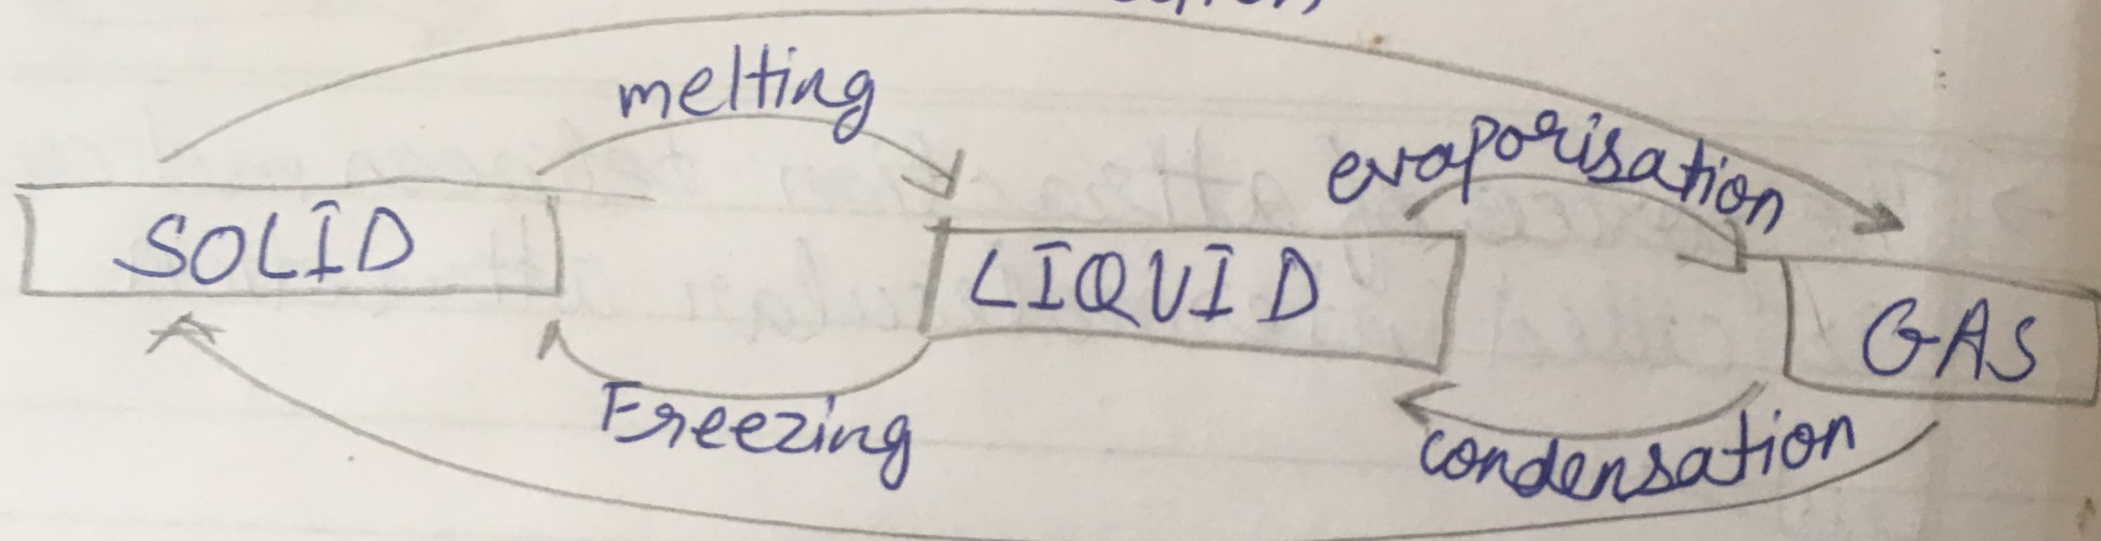 melting
evaporisation
SOLID
LIQUID
GAS
Freezing
condensation